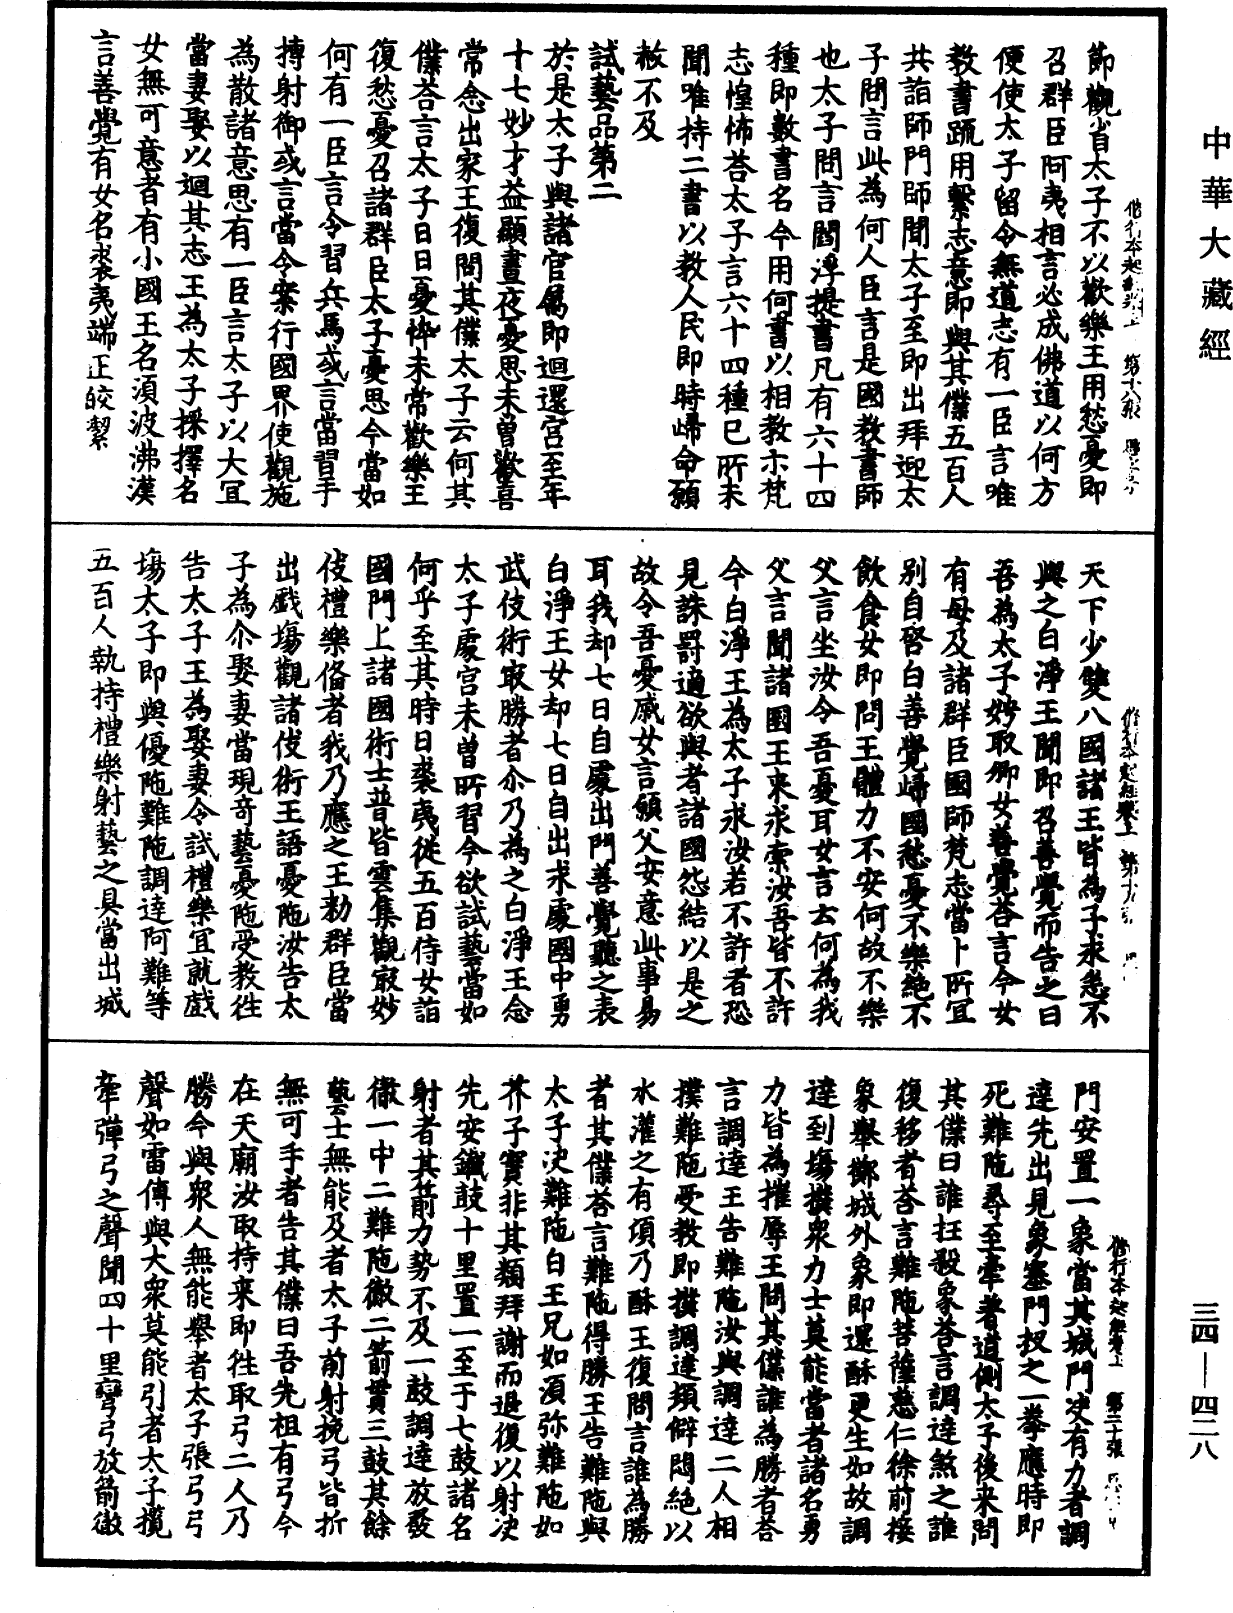 中華大藏經
節觀省太子不以歡樂王用愁憂即
召群臣阿夷相言必成佛道以何方
便使太子留令無道志有一臣言唯
教書䟽用繫志意即與其僕五百人
共詣師門師聞太子至即出拜迎太
子問言此為何人臣言是國教書師
也太子問言閻浮提書凡有六十四
種即數書名今用何書以相教尒梵
志惶怖荅太子言六十四種已所未
聞唯持二書以教人民即時歸命願
赦不及
試藝品第二
於是太子與諸官屬即迴還宮至年
十七妙才益顯晝夜憂思未曽歡喜
常念出家王復問其僕太子云何其
僕荅言太子日日憂悴未常歡樂王
復愁憂召諸群臣太子憂思今當如
何有一臣言令習兵馬或言當習手
摶射御或言當令案行國界使觀施
為散諸意思有一臣言太子以大冝
當妻娶以迴其志王為太子採擇名
女無可意者有小國王名湏波沸漢
言善覺有女名裘夷端正皎潔
天下少雙八國諸王皆為子求悉不
與之白淨王聞即召善覺而告之曰
吾為太子娉取卿女善覺荅言今女
有母及諸群臣國師梵志當卜所冝
別自啓白善覺歸國愁憂不樂絶不
飲食女即問王體力不安何故不樂
父言坐汝令吾憂耳女言云何為我
父言聞諸國王来求索汝吾皆不許
今白淨王為太子求汝若不許者恐
見誅罰適欲與者諸國怨結以是之
故令吾憂慼女言願父安意此事易
耳我却七日自處出門善覺聽之表
白淨王女却七日自出求處國中勇
武伎術最勝者尒乃為之白淨王念
太子處宮未曽所習今欲試藝當如
何乎至其時日裘夷從五百侍女詣
國門上諸國術士普皆雲集觀最妙
伎禮樂俻者我乃應之王勑群臣當
出戲塲觀諸伎術王語憂陁汝告太
子為尒娶妻當現奇藝憂陁受教往
告太子王為娶妻令試禮樂冝就戲
塲太子即與優陁難陁調達阿難等
五百人執持禮樂射藝之具當出城
門安置一象當其城門决有力者調
達先出見象塞門扠之一拳應時即
死難陁尋至牽著道側太子後来問
其僕曰誰抂殺象荅言調達煞之誰
復移者荅言難陁菩薩慈仁徐前接
象舉擲城外象即還酥更生如故調
達到塲撲衆力士莫能當者諸名勇
力皆為摧辱王問其僕誰為勝者荅
言調達王告難陁汝與調達二人相
撲難陁受教即撲調達頓僻悶絶以
水灌之有頃乃酥王復問言誰為勝
者其僕荅言難陁得勝王告難陁與
太子决難陁白王兄如湏弥難陁如
芥子實非其類拜謝而退復以射决
先安鐵鼓十里置一至于七鼓諸名
射者其箭力勢不及一鼓調達放發
徹一中二難陁徹二箭貫三鼓其餘
藝士無能及者太子前射挽弓皆折
無可手者告其僕曰吾先祖有弓今
在天廟汝取持来即往取弓二人乃
勝今與衆人無能舉者太子張弓弓
聲如雷傳與大衆莫能引者太子攬
牽彈弓之聲聞四十里彎弓放箭徹
三四—四二八